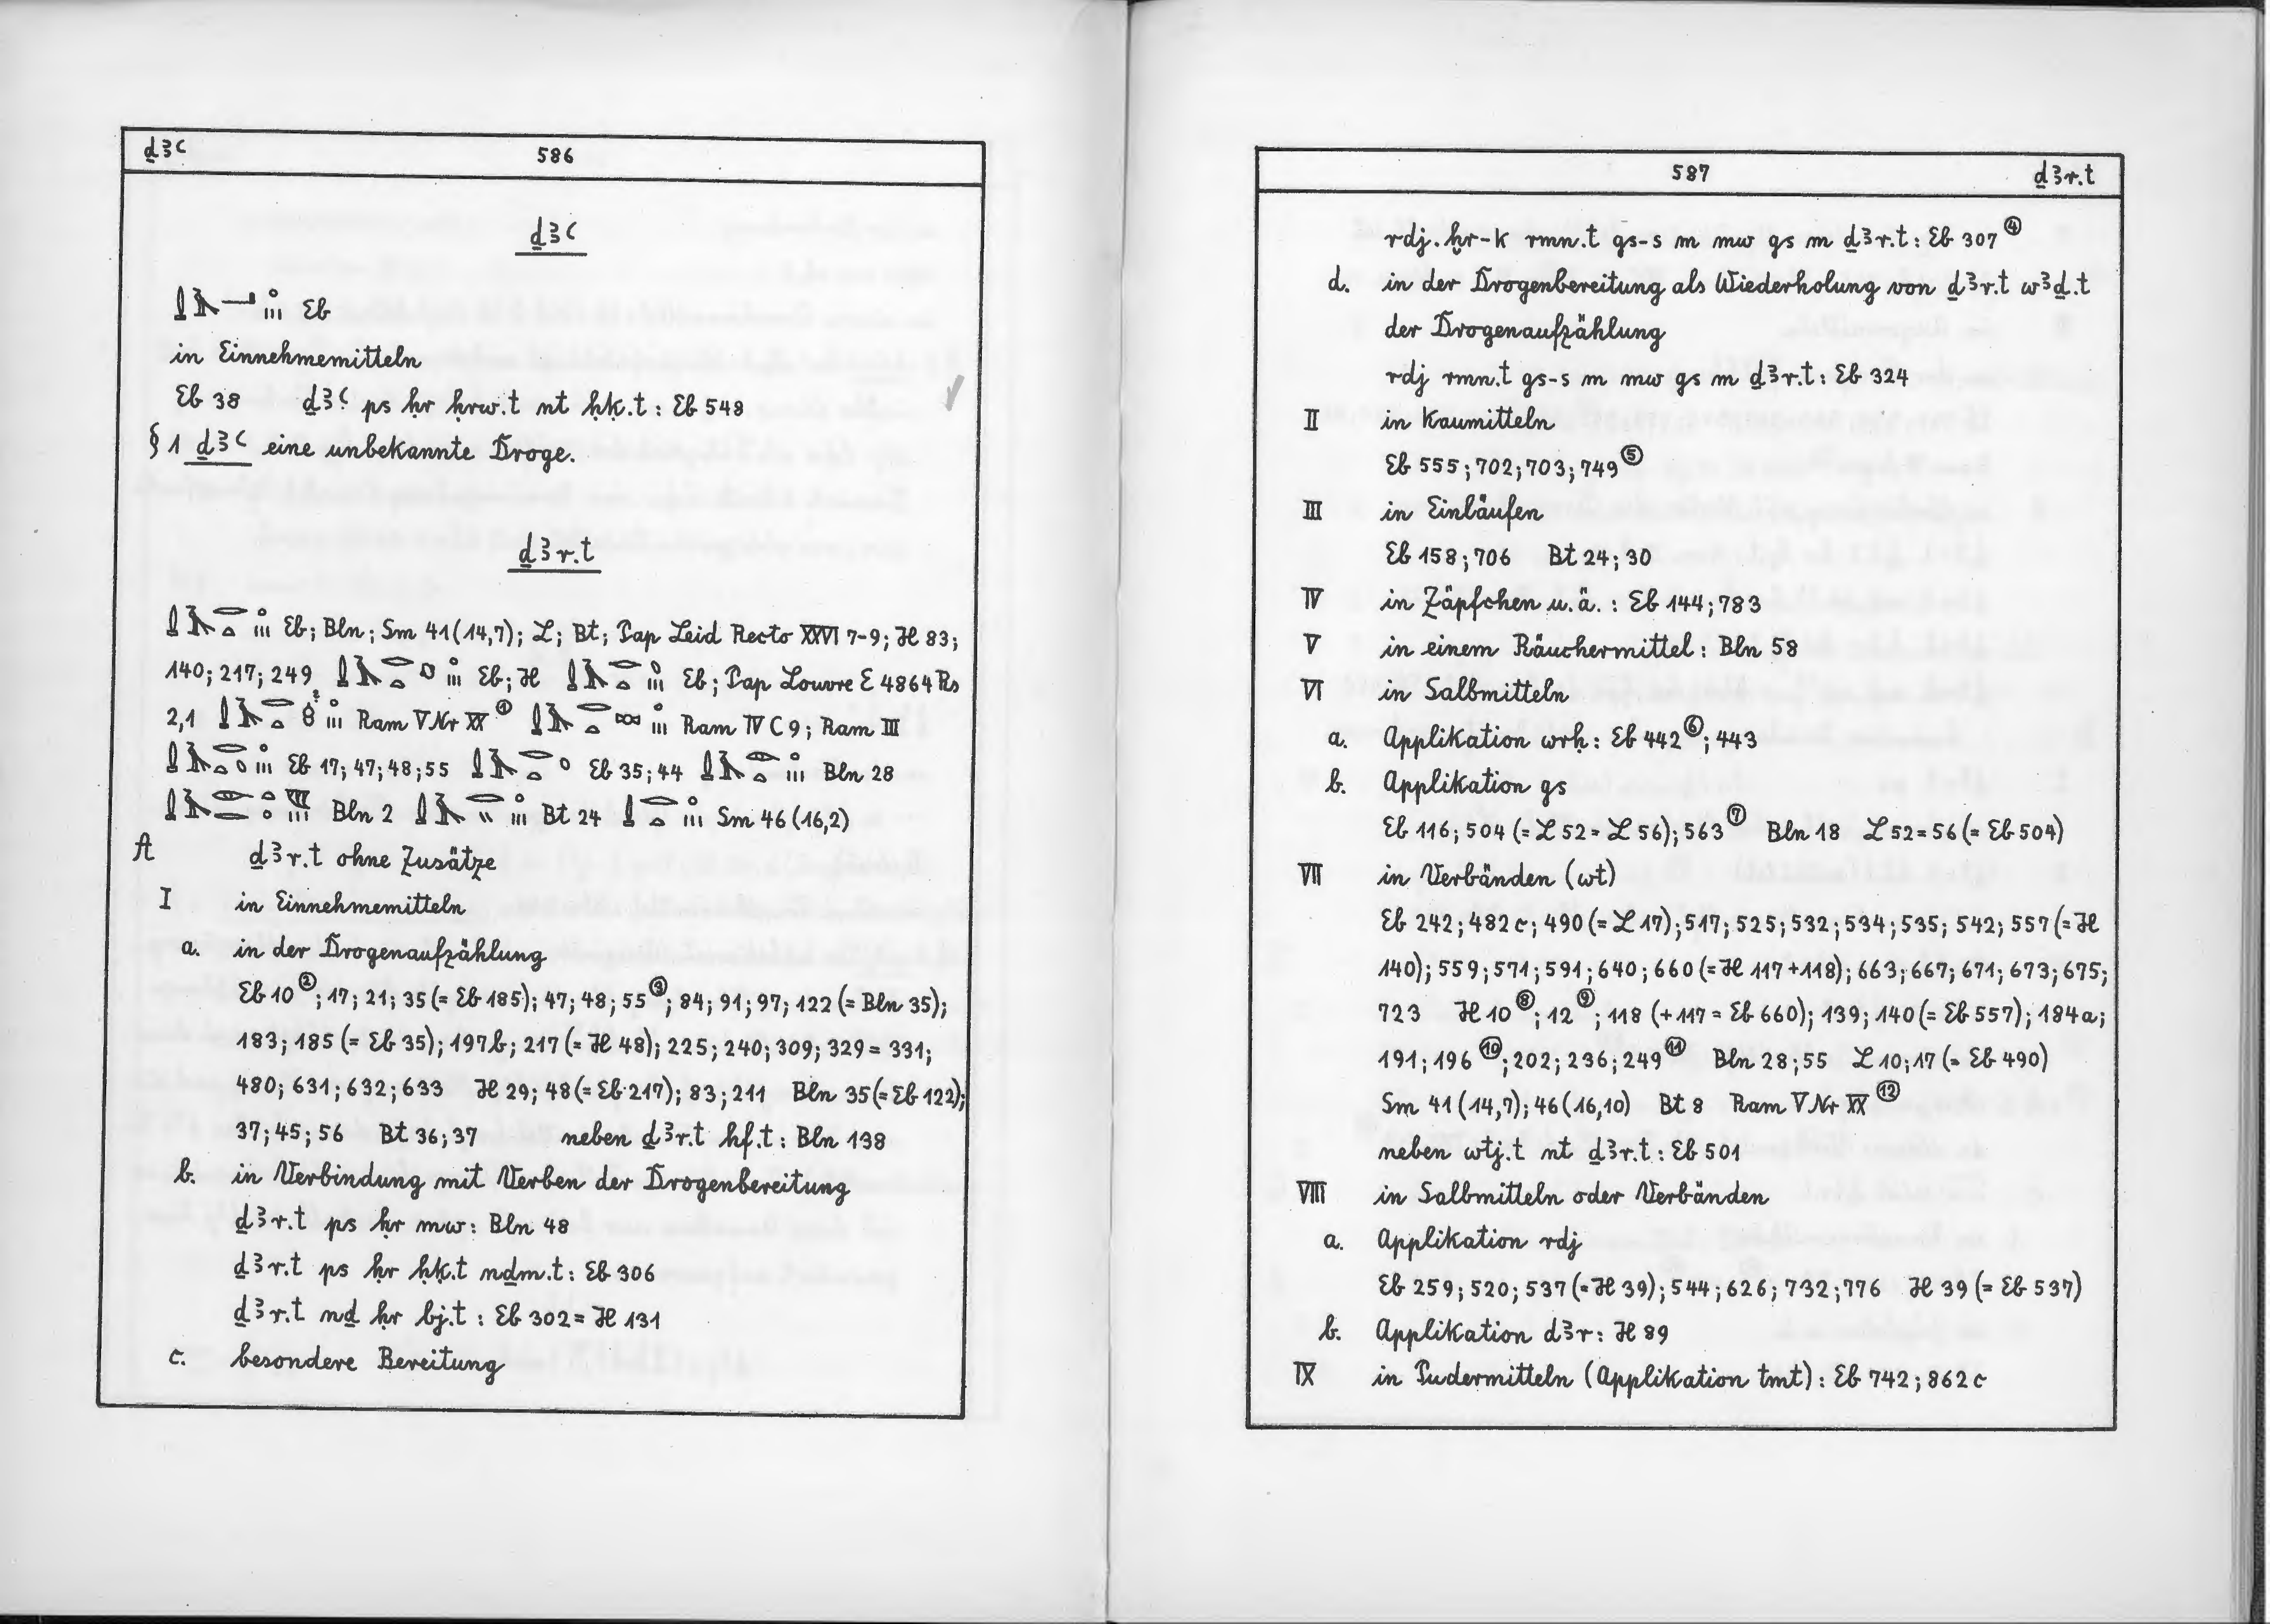 ḏꜣꜥ 586
ḏꜣꜥ
Eb
in Einnehmemitteln
Eb 38 ḏꜣꜥ ps ḥr ḥrw.t nt ḥḳ.t : Eb 548
§ 1 ḏꜣꜥ eine unbekannte Droge.
ḏꜣr.t
Eb; Bln; Sm 41 (14,7); L; Bt; Pap Leid Recto XXVI 7-9; H 83;
140; 217; 249 Eb; H Eb; Pap Louvre E 4864 Rs
2,1 Ram V Nr XX ① Ram IV C 9; Ram III
Eb 17; 47; 48; 55 Eb 35; 44 Bln 28
Bln 2 Bt 24 Sm 46 (16,2)
A ḏꜣr.t ohne Zusätze
I in Einnehmemitteln
a. in der Drogenaufzählung
Eb 10 ②; 17; 21; 35 (= Eb 185); 47; 48; 55 ③; 84; 91; 97; 122 (= Bln 35);
183; 185 (= Eb 35); 197b; 217 (= H 48); 225; 240; 309; 329 = 331;
480; 631; 632; 633 H 29; 48 (= Eb 217); 83; 211 Bln 35 (= Eb 122);
37; 45; 56 Bt 36; 37 neben ḏꜣr.t hf.t : Bln 138
b. in Verbindung mit Verben der Drogenbereitung
ḏꜣr.t ps ḥr mw : Bln 48
ḏꜣr.t ps ḥr ḥḳ.t nḏm.t : Eb 306
ḏꜣr.t nḏ ḥr bj.t : Eb 302 = H 131
c. besondere Bereitung
587 ḏꜣr.t
rdj.ḫr-k rmn.t gs-s m mw gs m ḏꜣr.t : Eb 307 ④
d. in der Drogenbereitung als Wiederholung von ḏꜣr.t wꜣḏ.t
der Drogenaufzählung
rdj rmn.t gs-s m mw gs m ḏꜣr.t : Eb 324
II in Kaumitteln
Eb 555; 702; 703; 749 ⑤
III in Einläufen
Eb 158; 706 Bt 24; 30
IV in Zäpfchen u.ä. : Eb 144; 783
V in einem Räuchermittel : Bln 58
VI in Salbmitteln
a. Applikation wrḥ : Eb 442 ⑥; 443
b. Applikation gs
Eb 116; 504 (= L 52 = L 56); 563 ⑦ Bln 18 L 52 = 56 (= Eb 504)
VII in Verbänden (wt)
Eb 242; 482 c; 490 (= L 17); 517; 525; 532; 534; 535; 542; 557 (= H
140); 559; 571; 591; 640; 660 (= H 117 + 118); 663; 667; 671; 673; 675;
723 H 10 ⑧; 12 ⑨; 118 (+ 117 = Eb 660); 139; 140 (= Eb 557); 184a;
191; 196 ⑩; 202; 236; 249 ⑪ Bln 28; 55 L 10; 17 (= Eb 490)
Sm 41 (14,7); 46 (16,10) Bt 8 Ram V Nr XX ⑫
neben wtj.t nt ḏꜣr.t : Eb 501
VIII in Salbmitteln oder Verbänden
a. Applikation rdj
Eb 259; 520; 537 (= H 39); 544; 626; 732; 776 H 39 (= Eb 537)
b. Applikation dꜣr : H 89
IX in Pudermitteln (Applikation tmt) : Eb 742; 862 c